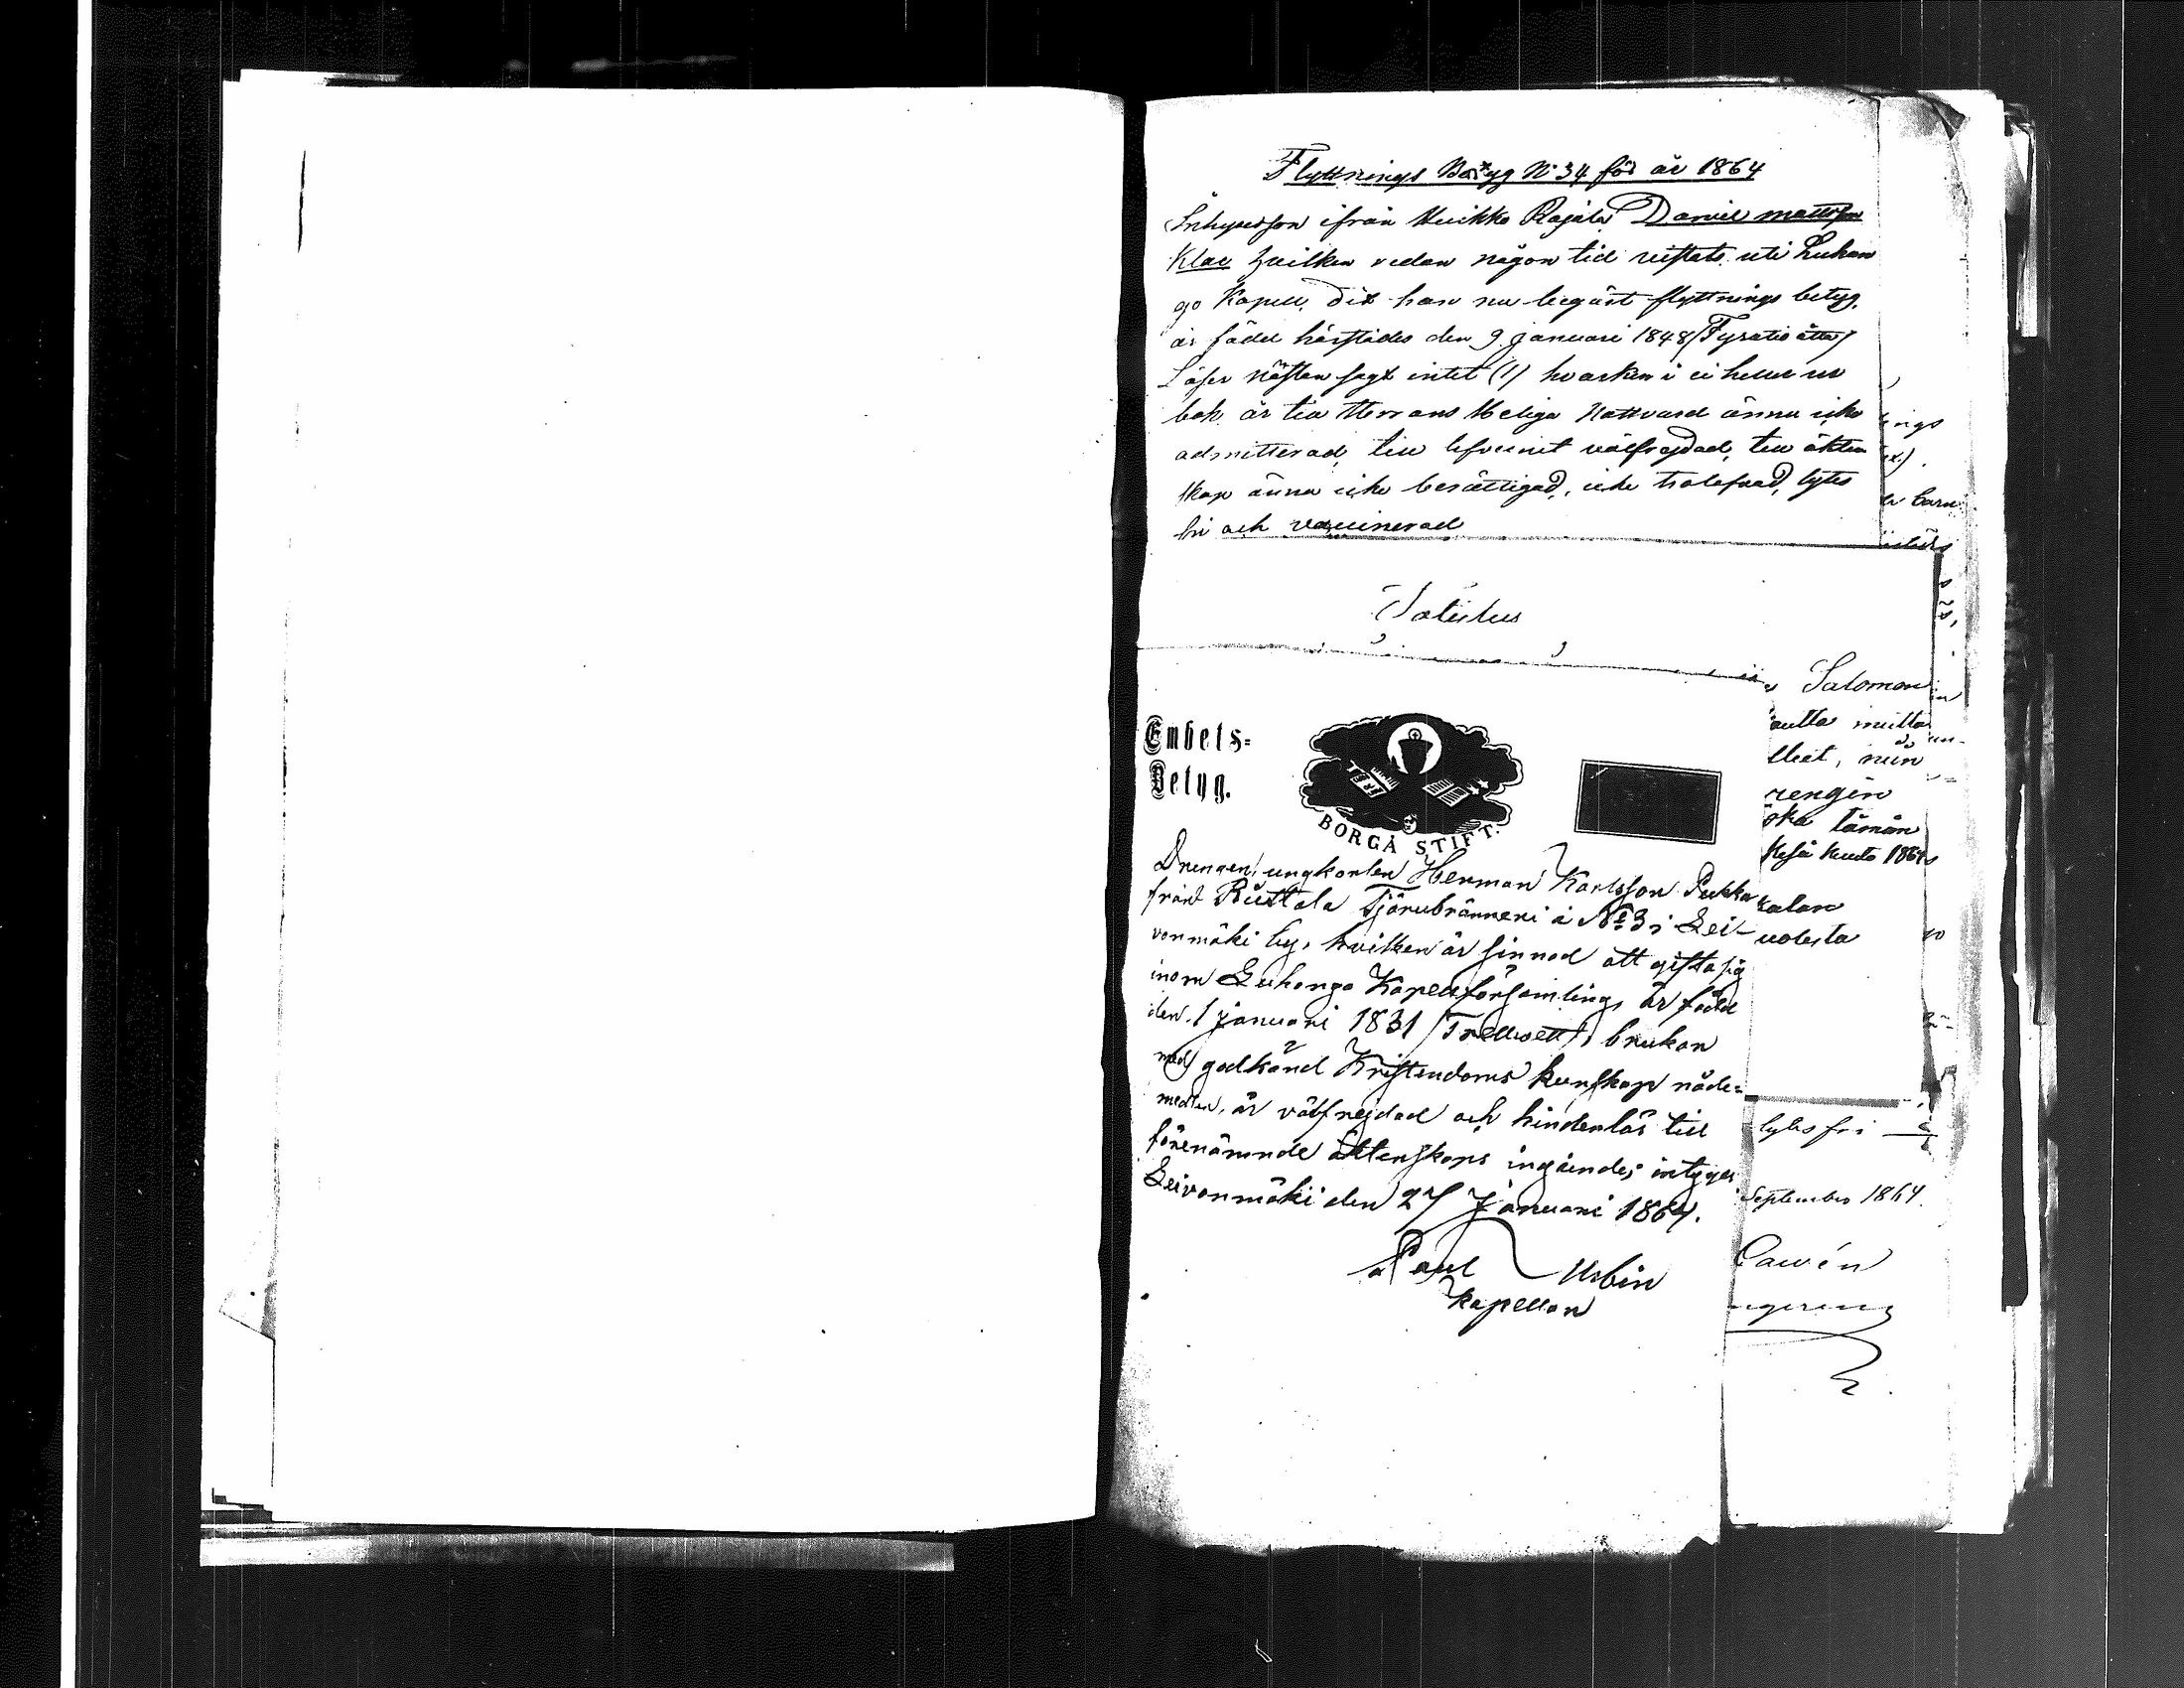 Flyttnings Betyg N:34 för år 1864
Inhyseson ifrån Muikko Rajala Daniel mattsson
Klae hvilken redan någon tid vistats uti Luhan
go Kapell, dit han nu begärt flyttnings betyg,
är född härstädes den 9 januari 1848 (Fyratio åtta)
Läser nästan sagt intet (1) hvarken i ei heller ur
bok är till Herrans Heliga Nattvard ännu icke
admitterad, till lefvernet välfrejdad, till äkten
skap ännu icke berättigad, icke trolofvad, lytes
fri och vaccinerad
ings
a barn
Todistus
Salomon
autta mutta
lleet, niin
rengin
ska tämän
Kesä kuuta 1864
Embets-
Betyg.
BORGÅ STIFT.
Drengen, ungkarlen Herman Karlsson Pukka
från Riittala Tjärubränneri å No 3 i Lei-
vonmäki by, hvilken är sinnad att gifta sig
inom Luhango Kapellförsamling, är född
den 1 januari 1831 (Trettioett), brukar
med godkänd Kristendoms kunskap nåde-
medlen, är välfrejdad och hinderlös till
förenämnde äktenskaps ingående; intygas
Leivonmäki den 27 Januari 1864.
Paul Urbin
Kapellan
kalan
uolesta
lytes fri
September 1864.
Cawén